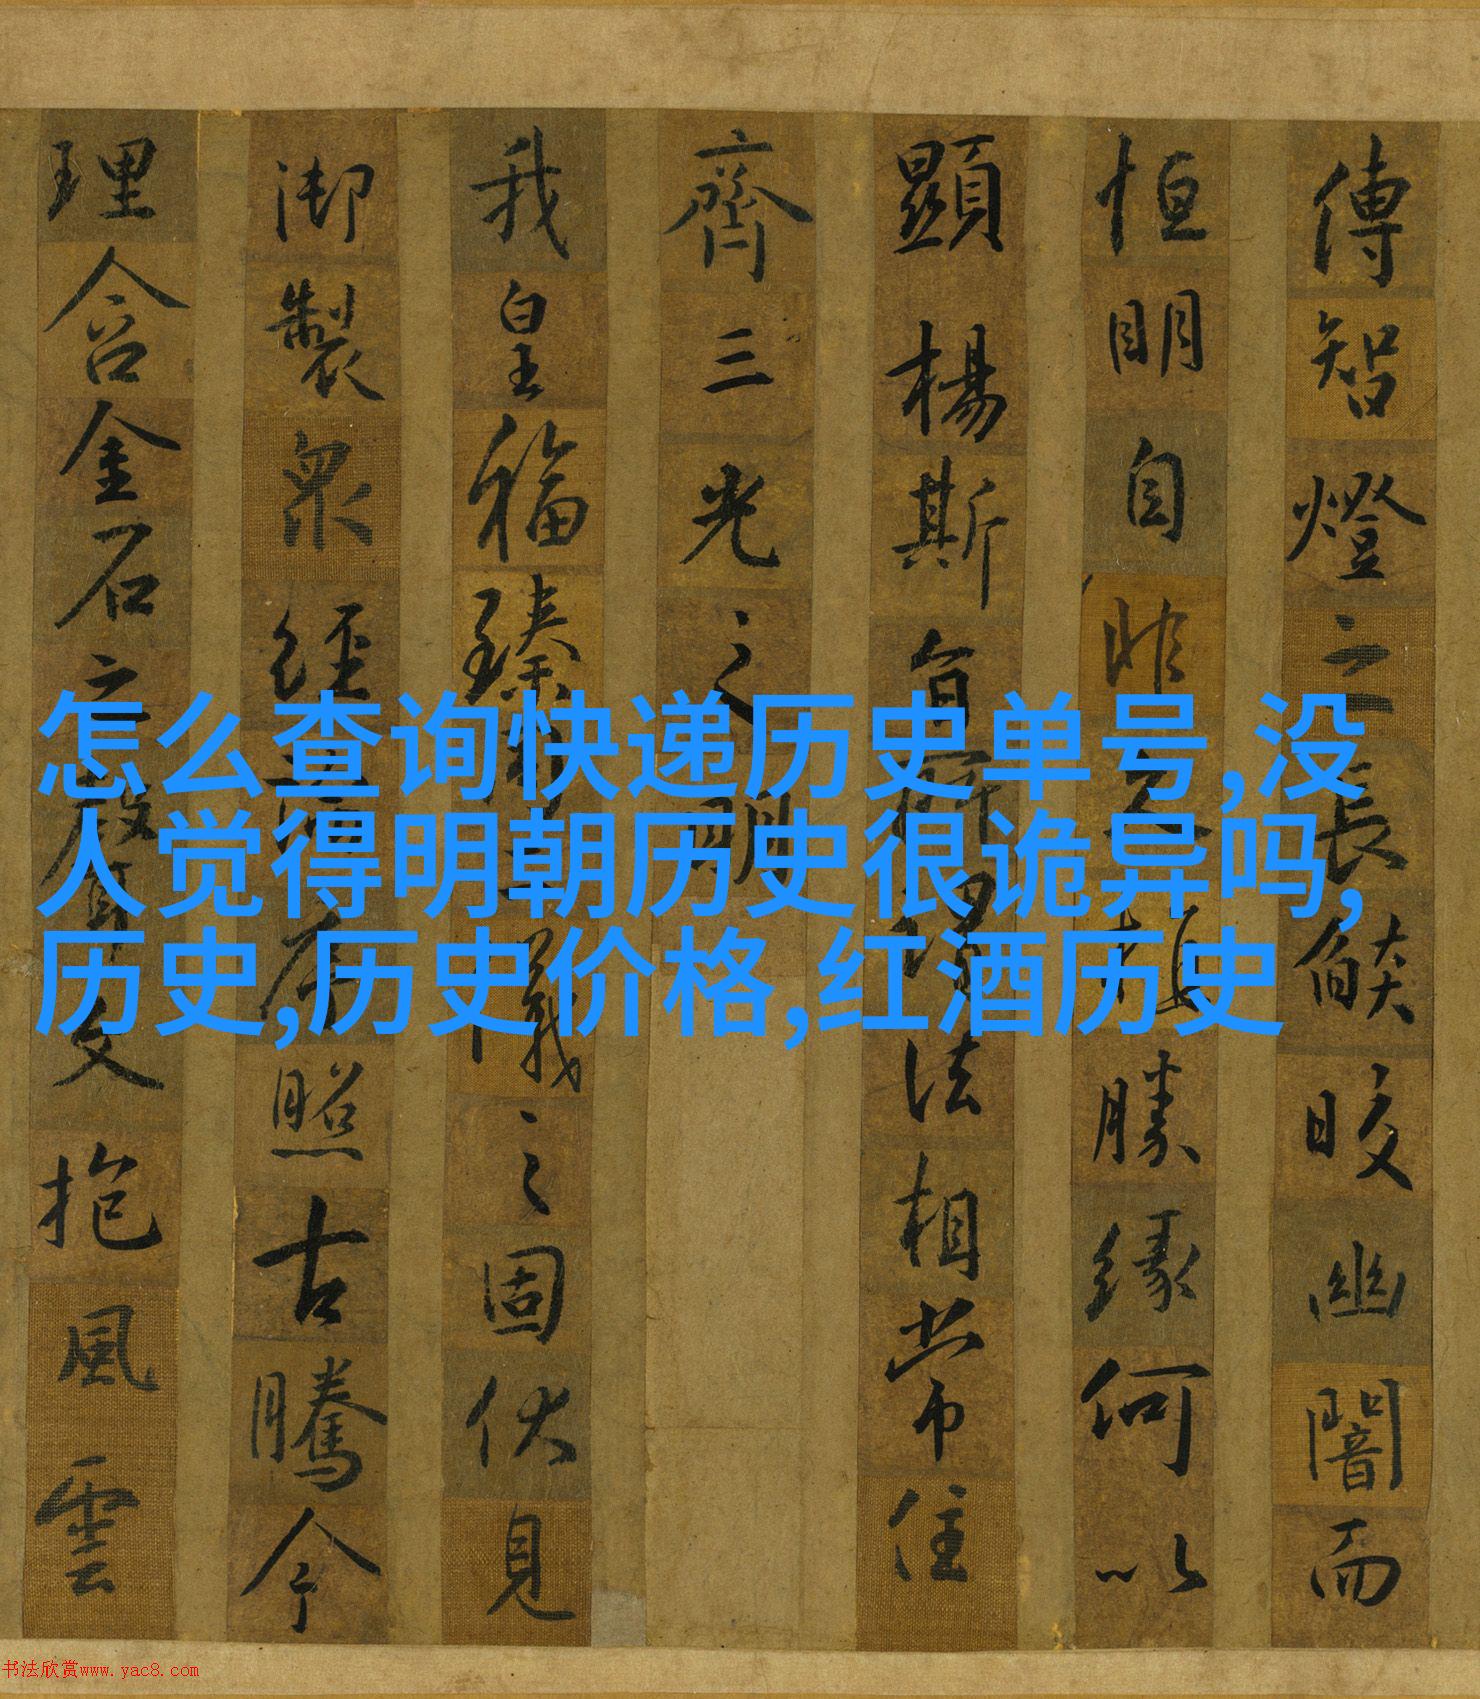 傳智燈之長燄皎幽闇而
恒明自非久植勝緣何以
顯楊斯旨所謂法相常住
齊三光之明
我皇福臻同二儀之固伏見
御製眾經論序照古騰今
理含金石之聲文抱風雲
怎么查询快递历史单号,没
人觉得明朝历史很诡异吗,
历史,历史价格,红酒历史
书法欣赏www.yac8.com